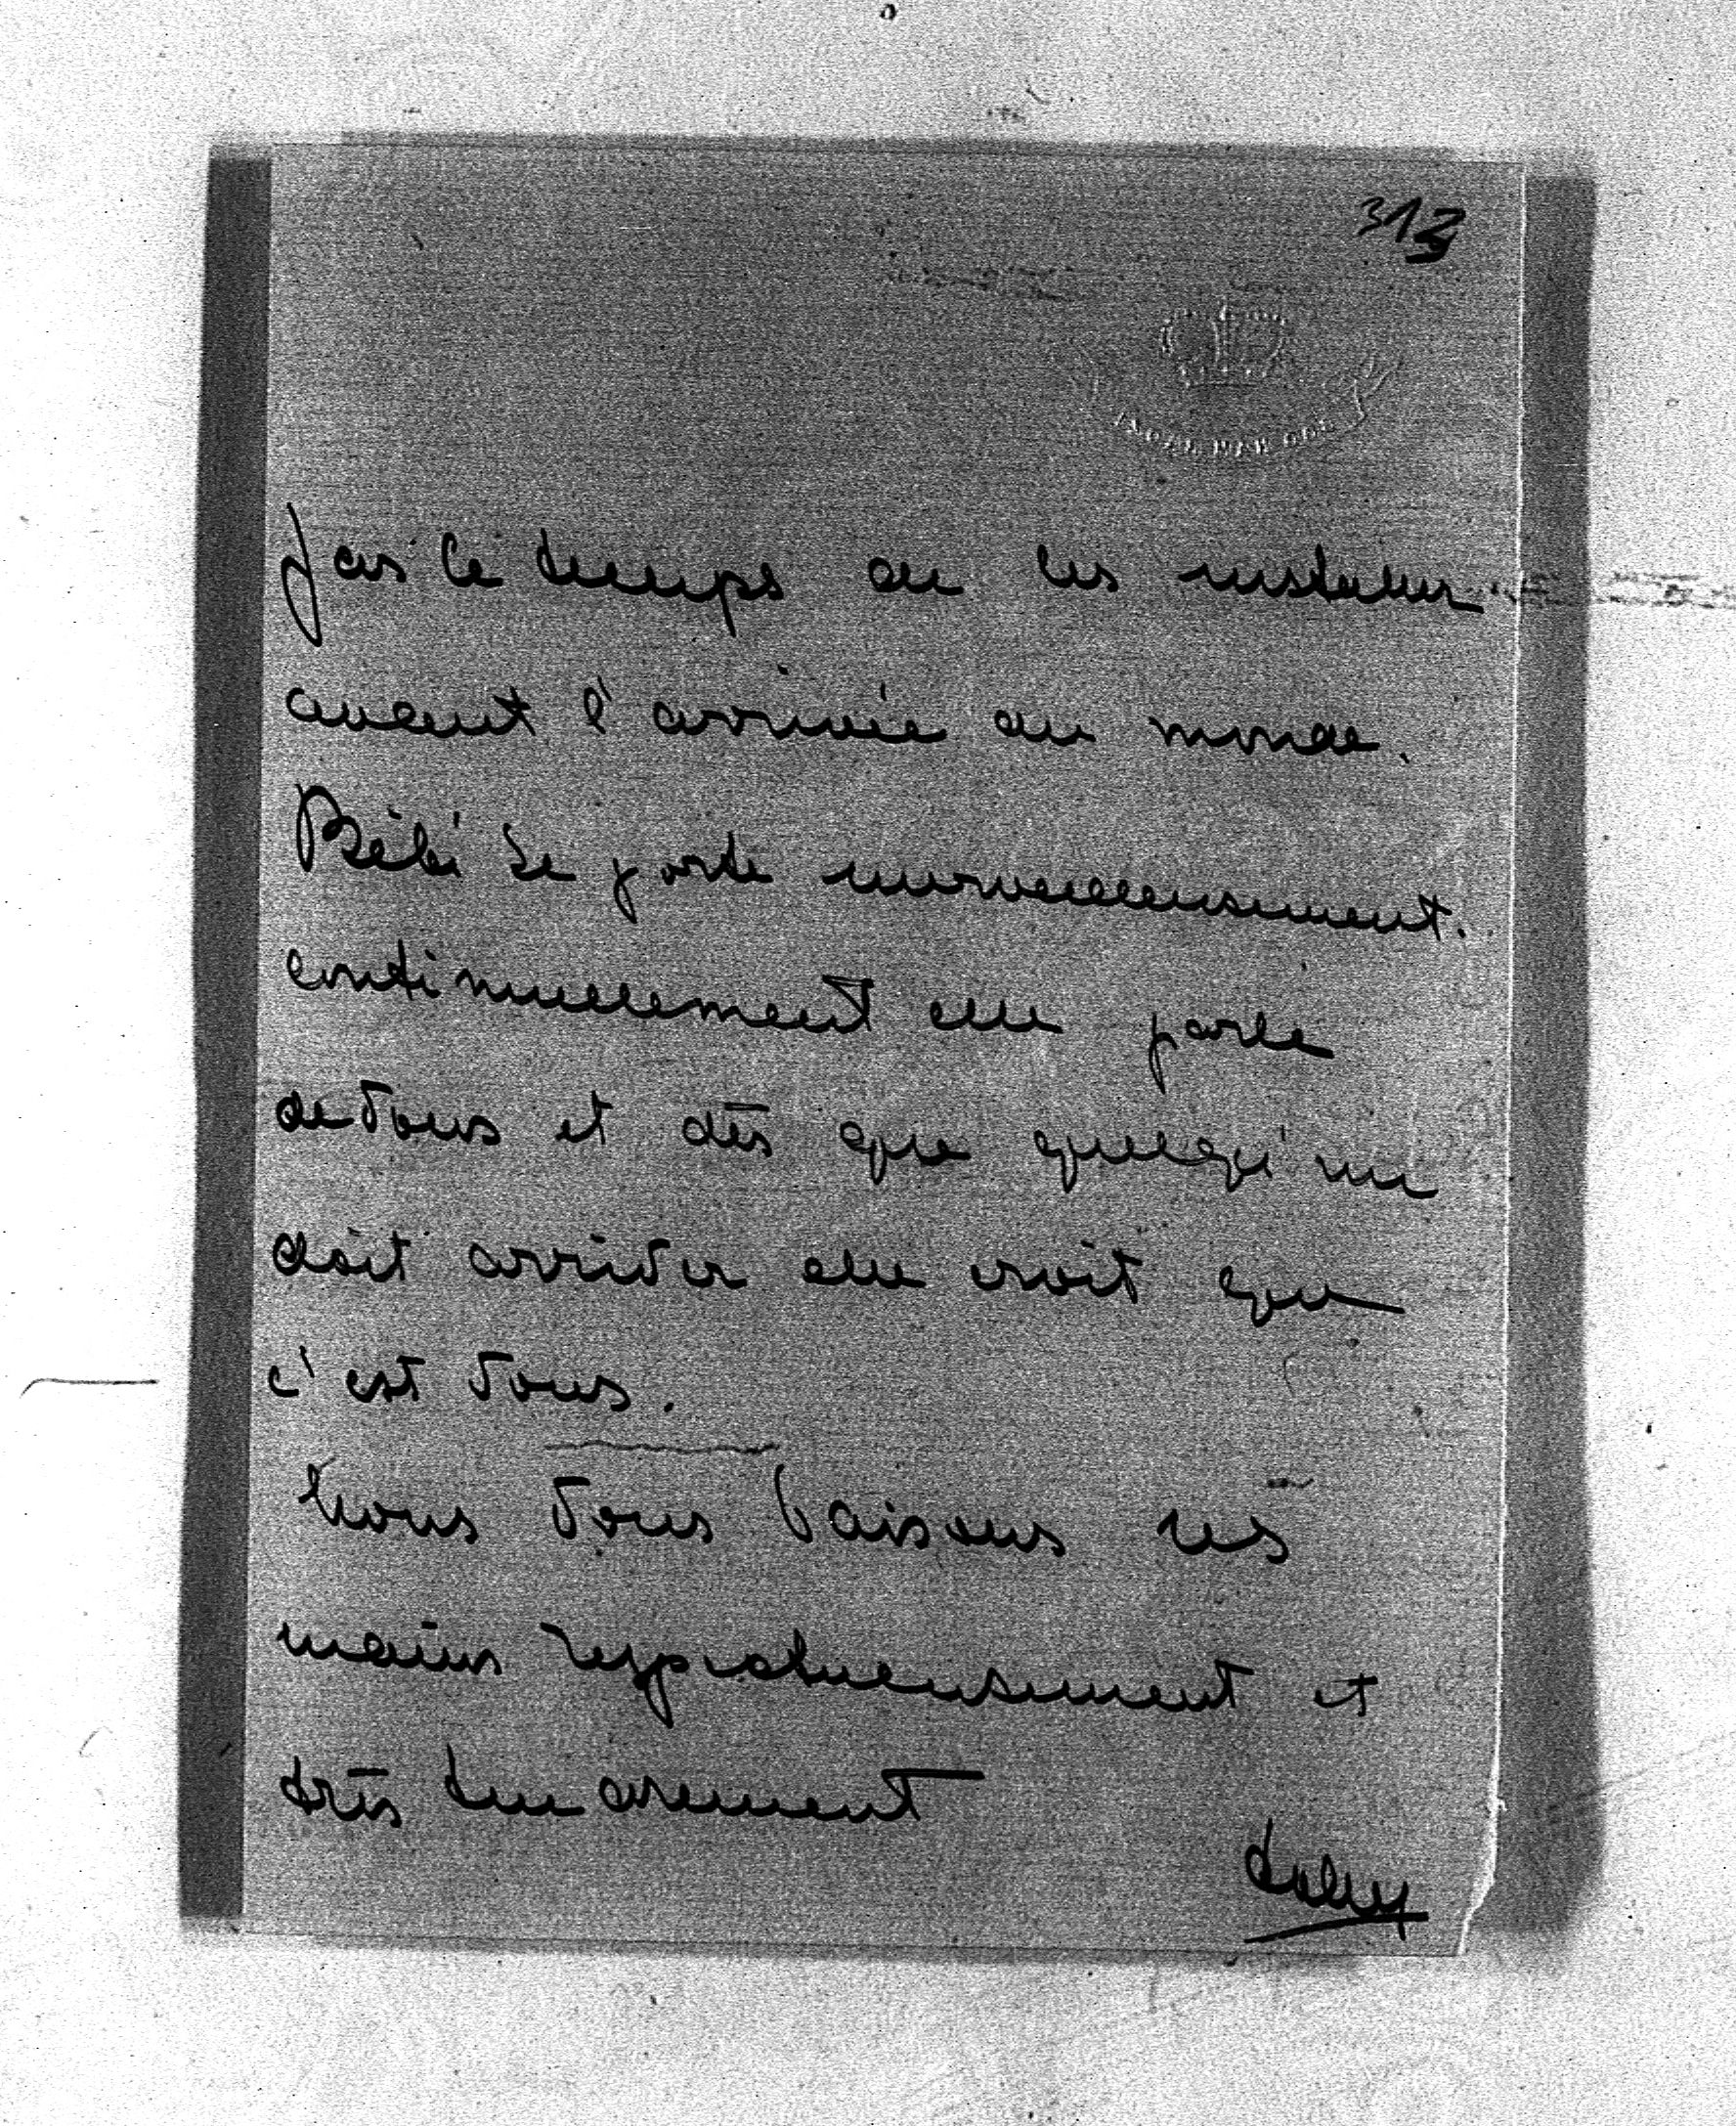 313
pas le temps de les installer
avant l'arrivée du monde.
Bébé se porte merveilleusement.
continuellement elle parle
de vous et dès que quelqu'un
doit arriver elle croit que
c'est vous.
Nous vous baisons les
mains respectueusement et
très tendrement